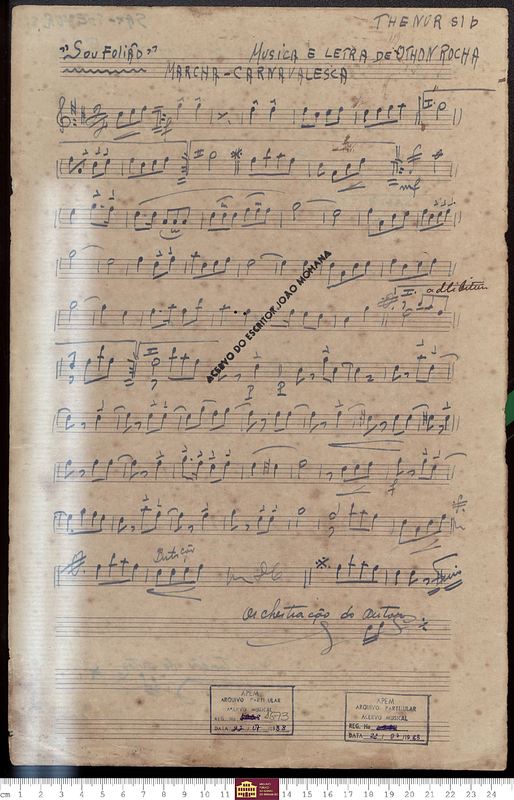 THENOR SIb
"SOU FOLIÃO"
MUSICA E LETRA DE OTHON ROCHA
MARCHA-CARNAVALESCA
I
II
mf
II. adlibitum
ACERVO DO ESCRITOR JOÃO MOHANA
I
II
P P
f
Orchestração do Autor
APEM
ARQUIVO PARTICULAR
ACERVO MUSICAL
REG. No. 2573
DATA
APEM
ARQUIVO PARTICULAR
ACERVO MUSICAL
REG. No.
DATA
cm 1 2 3 4 5 6 7 8 9 10 11 12 13 14 15 16 17 18 19 20 21 22 23 24